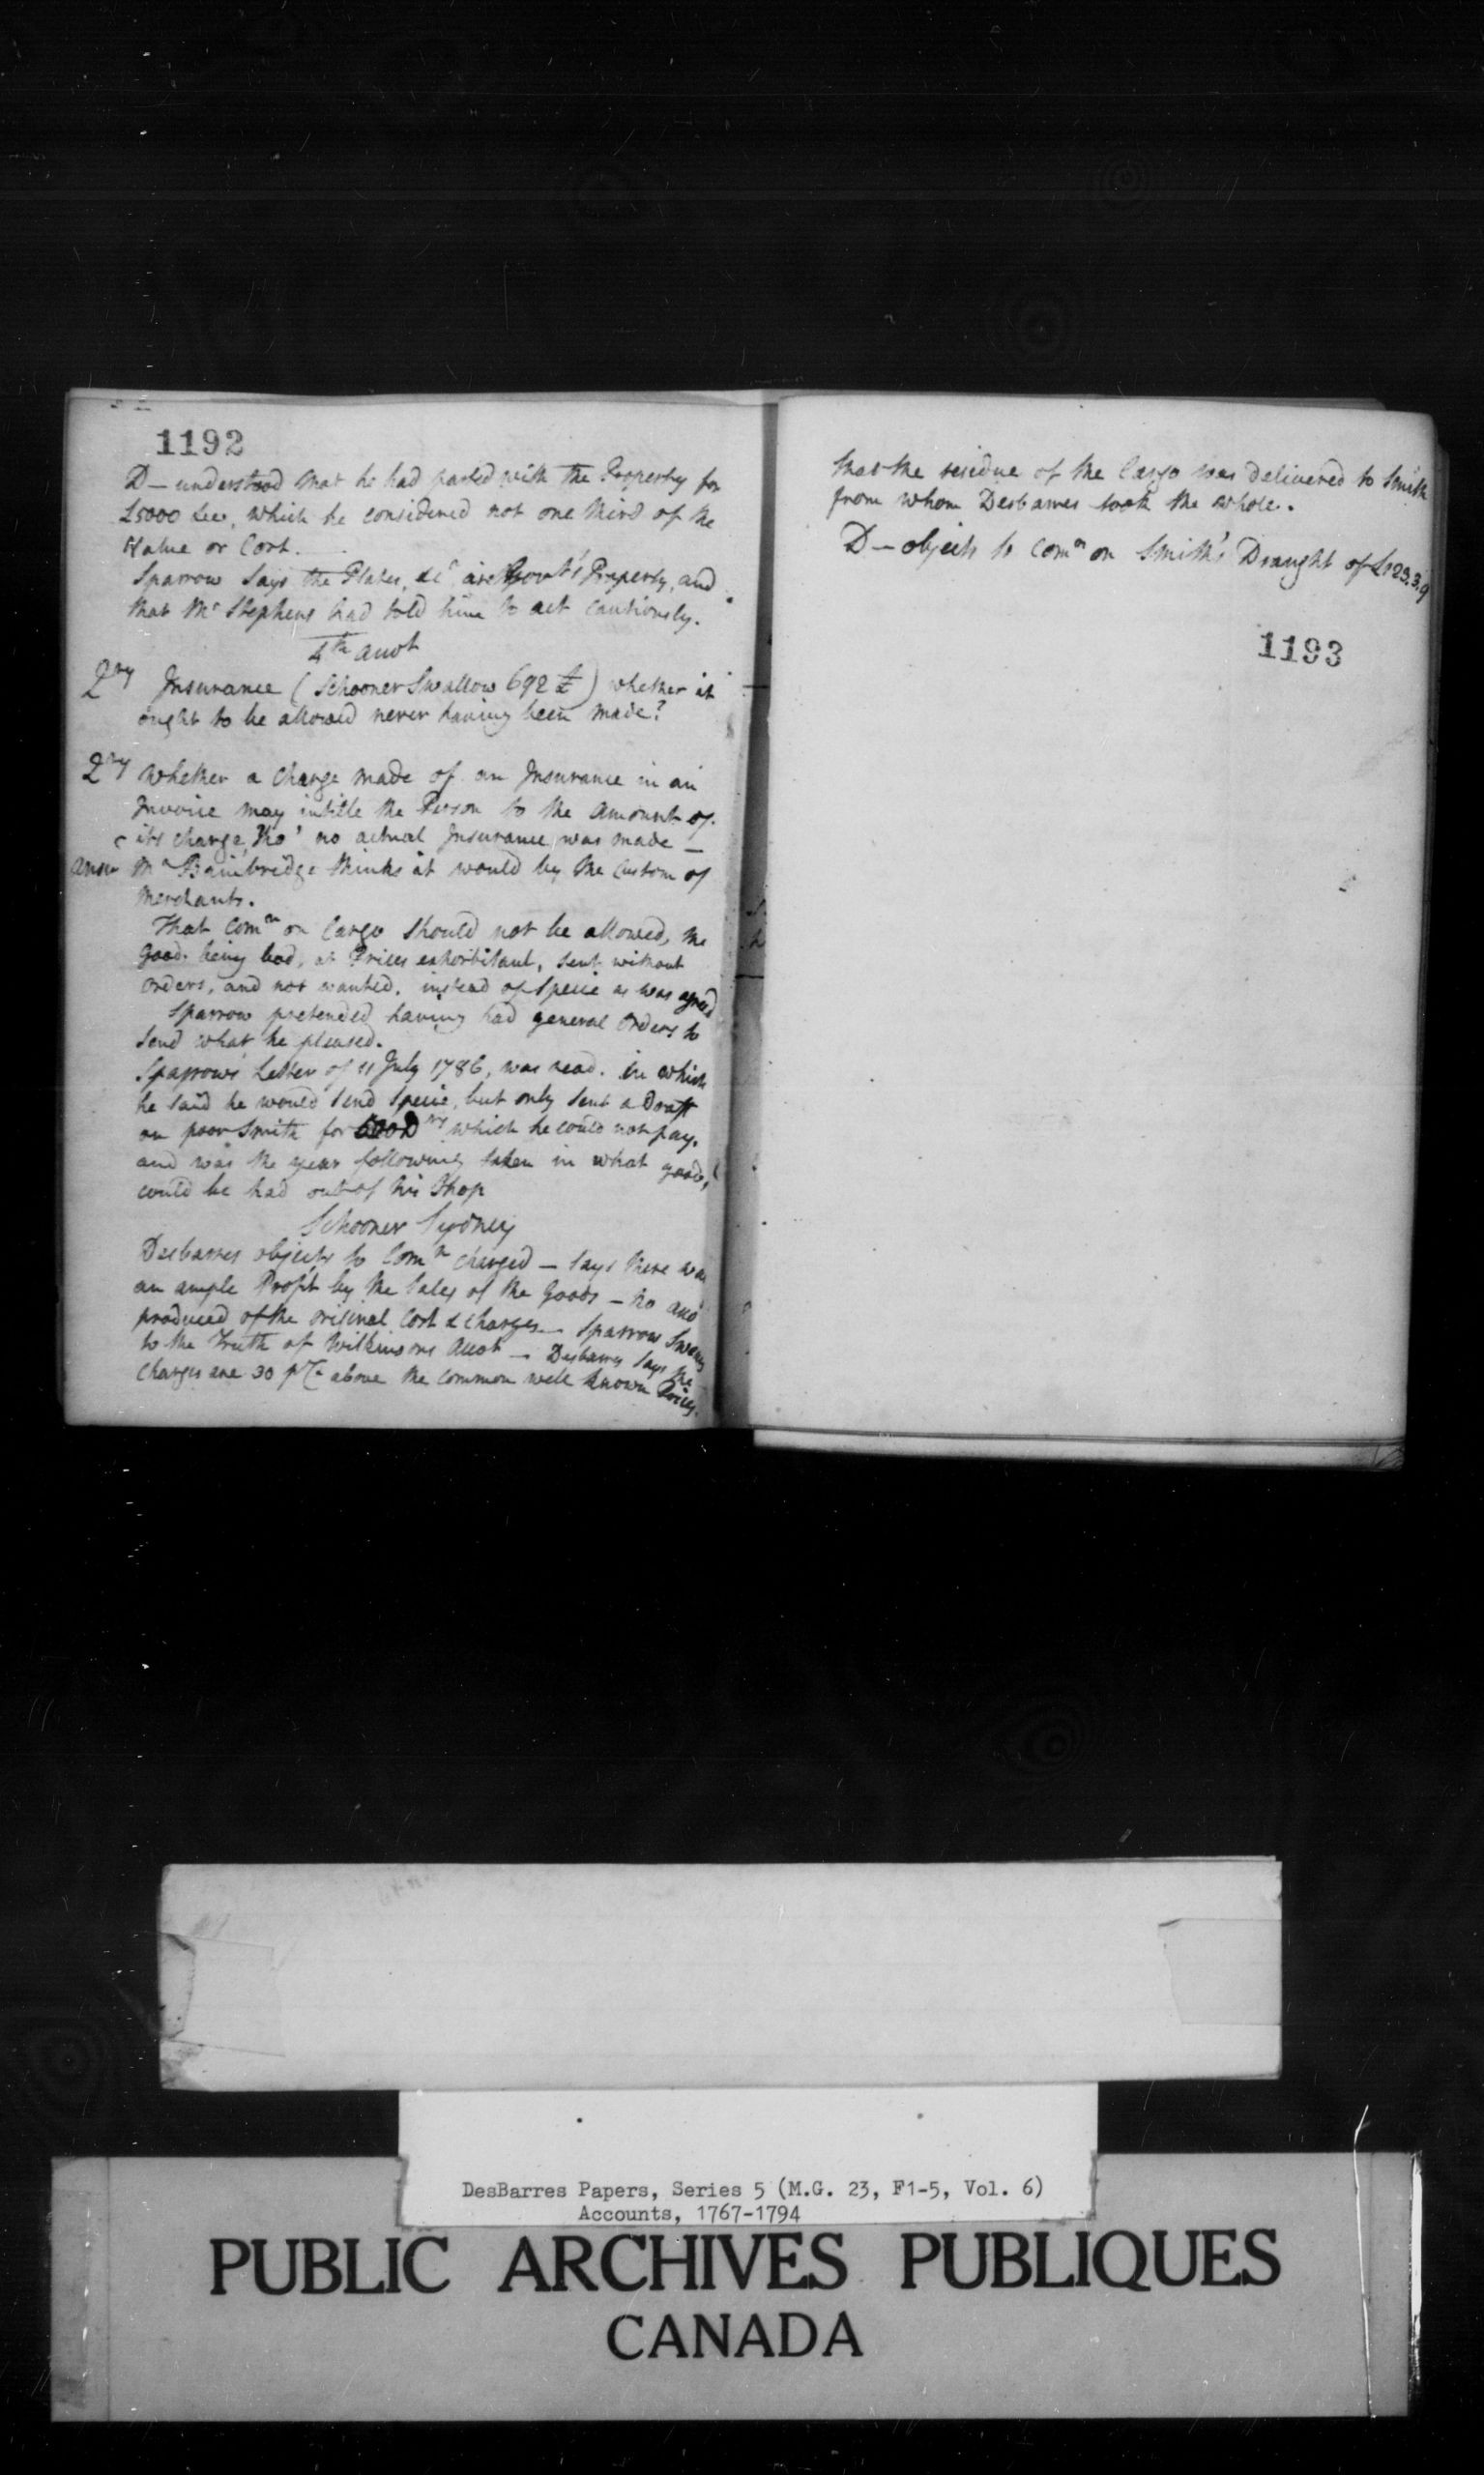 1192
D — understood that he had parted with the Property for
£5000 , which he considered not one third of the
Value or Cost.
Sparrow Says the Plates, &c are Govt's Property, and
that Mr Stephens had told him to act cautiously.
4th Acct
Qry Insurance (Schooner Swallow 692 £) whether it
ought to be allowed never having been made?
Qry Whether a charge made of an Insurance in an
Invoice may intitle the Person to the Amount of
its charge, tho' no actual Insurance was made —
Answr Mr Bainbridge thinks it would by the Custom of
Merchants.
That Comn on Cargo should not be allowed, the
Goods being bad, at Prices exhorbitant, sent without
orders, and not wanted, instead of Specie as was agreed
Sparrow pretended having had general Orders to
send what he pleased.
Sparrows Letter of 11 July 1786, was read. in which
he said he would send Specie, but only sent a Draft
on poor Smith for which he could not pay,
and was the year following taken in what goods,
could be had out of his Shop
Schooner Sydney
Desbarres objects to Comn charged — says there was
an ample Profit by the Sales of the Goods — no acct
produced of the original Cost & charges — Sparrow Swears
to the Truth of Wilkinsons Acct — Desbarres says the
Charges are 30 pCt above the common well known Prices.
that the residue of the Cargo was delivered to Smith
from whom Desbarres took the whole.
D — objects to Comn on Smith's Draught of £123.3.9
1193
DesBarres Papers, Series 5 (M.G. 23, F1-5, Vol. 6)
Accounts, 1767-1794
PUBLIC ARCHIVES PUBLIQUES
CANADA